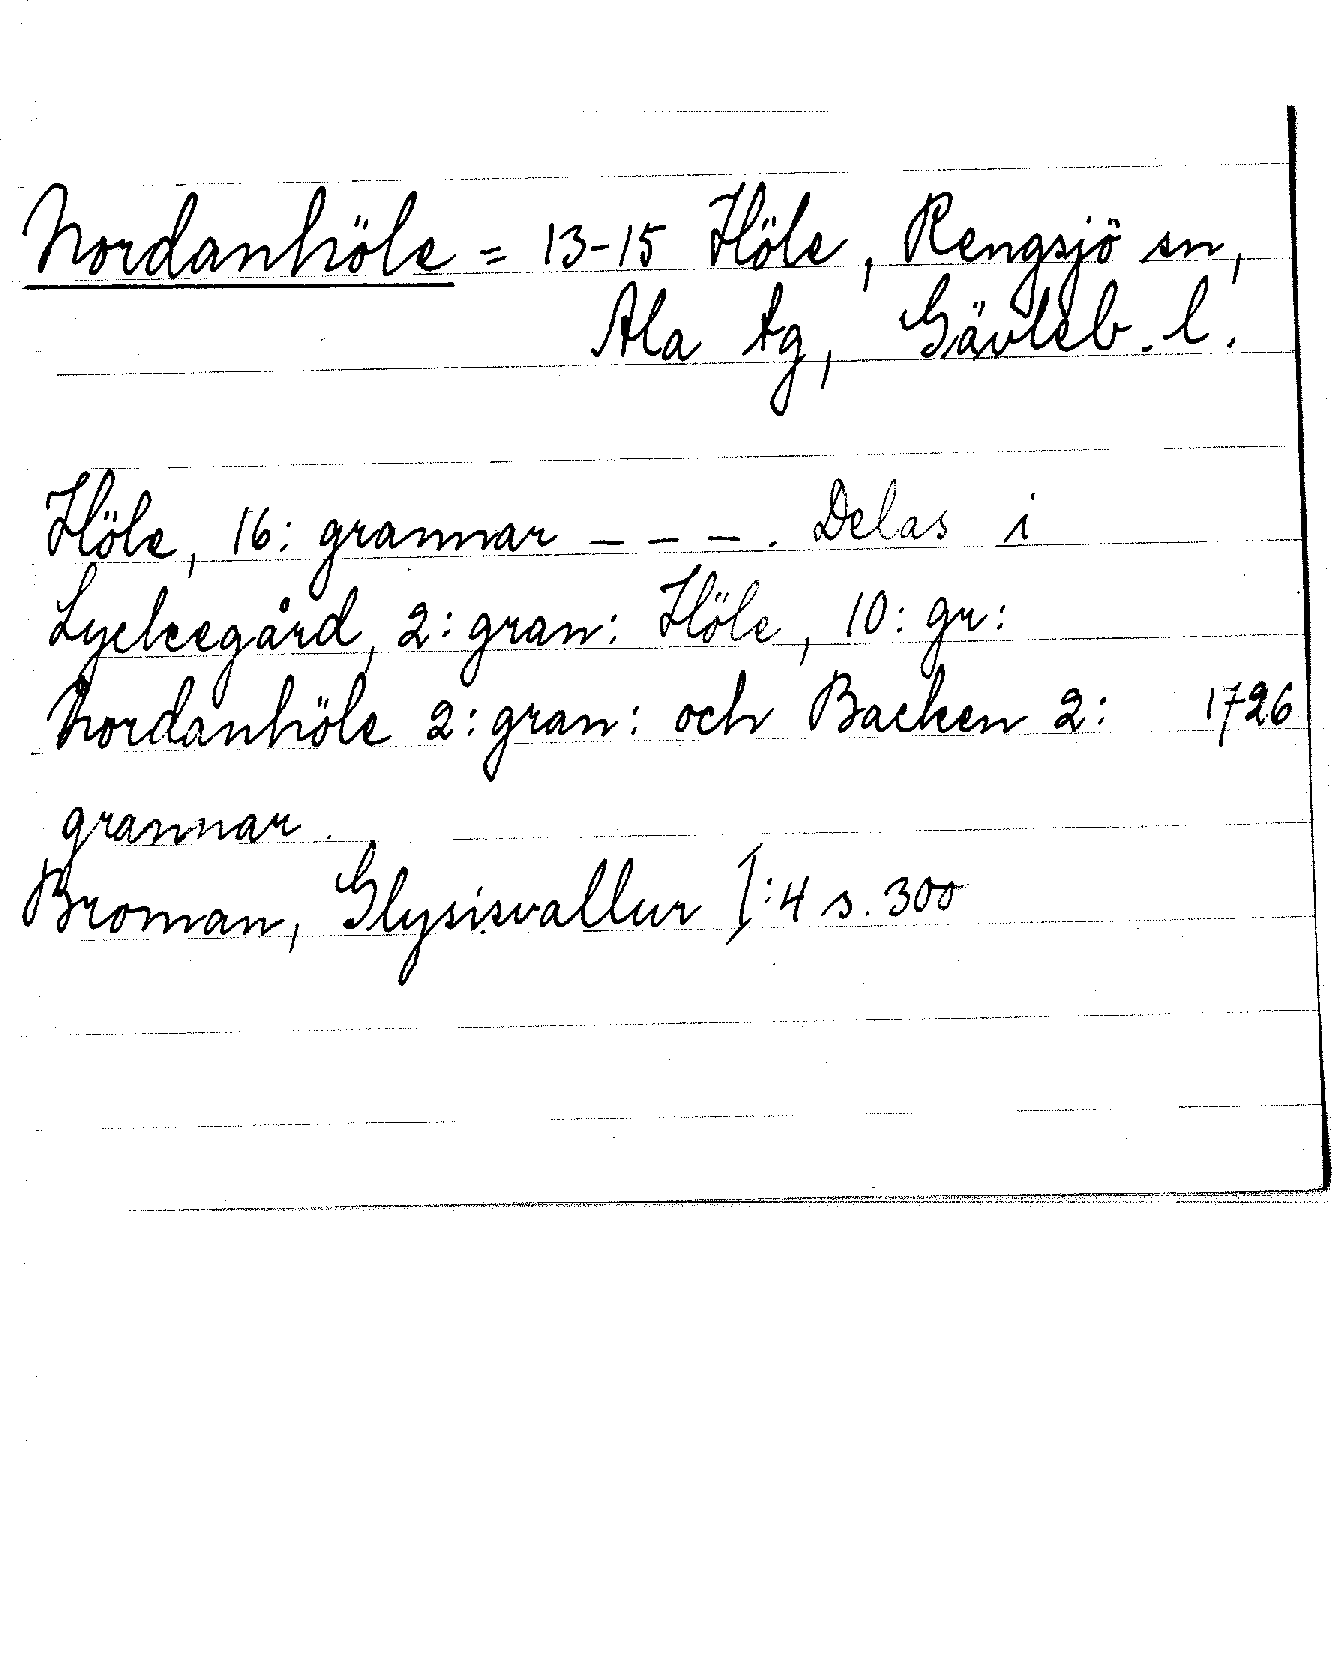 Nordanhöle = 13-15 Höle, Rengsjö sn,
Ala tg, Gävleb. l.
Höle, 16: grannar - - - . Delas i
Lyckegård, 2: gran: Höle, 10: gr:
Nordanhöle 2: gran: och Backen 2: 1726
grannar.
Broman, Glysisvallur I:4 s. 300